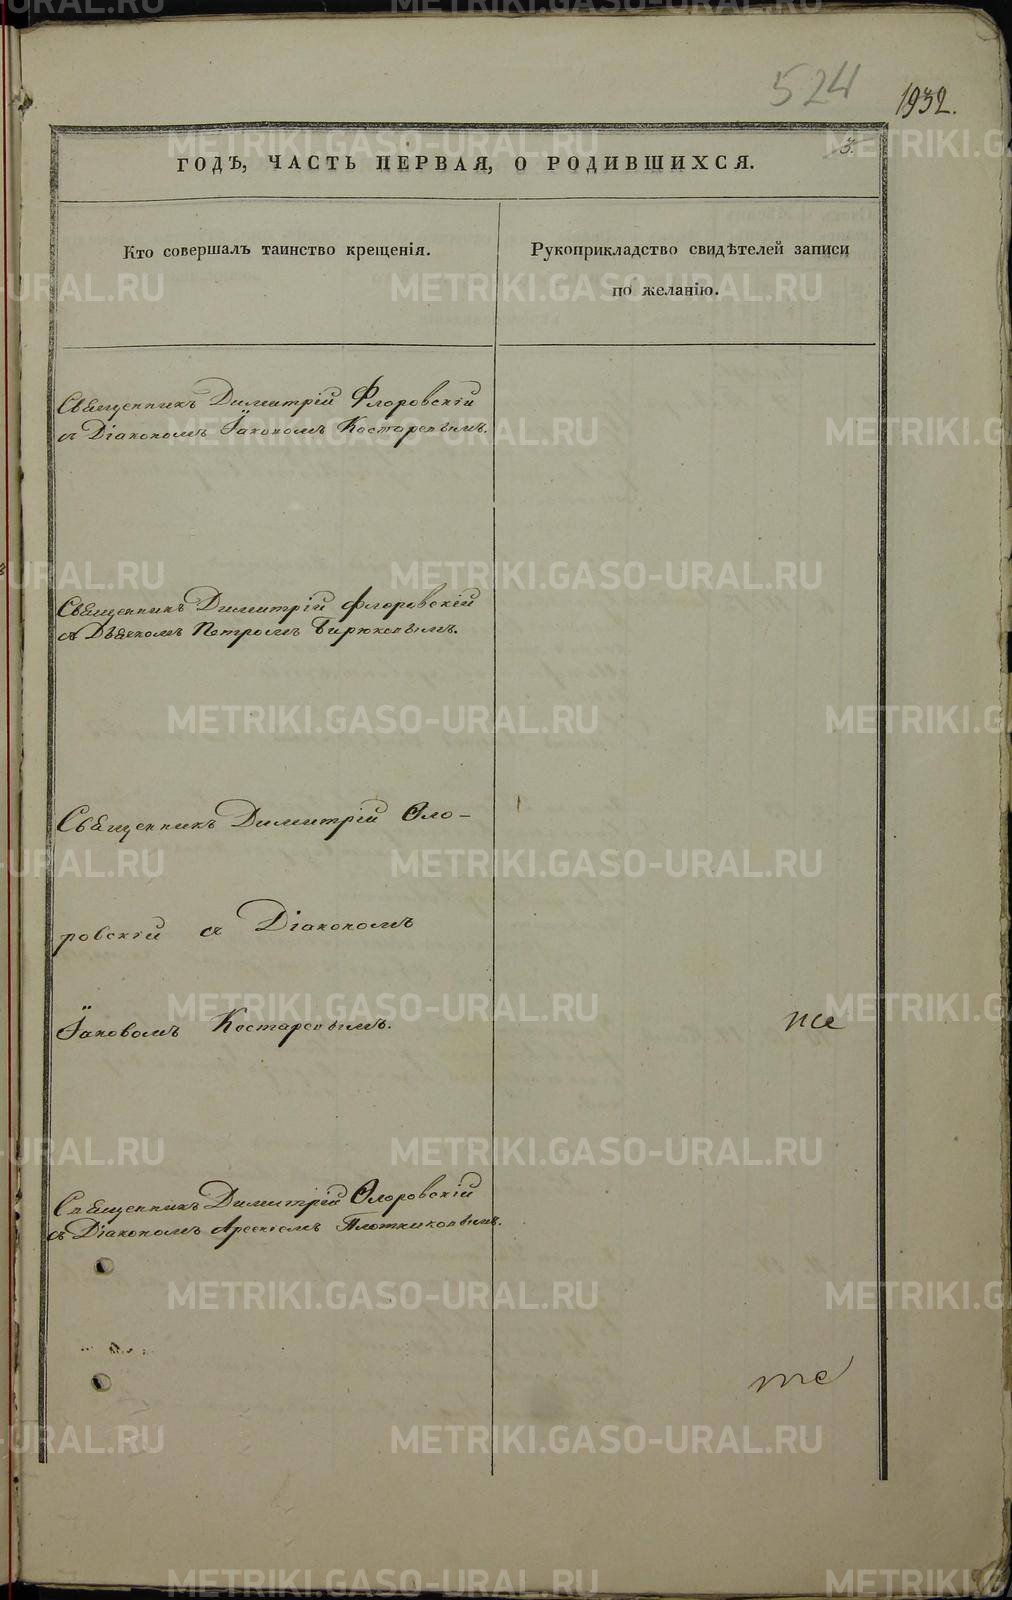 524
1932.
3.
ГОДЪ, ЧАСТЬ ПЕРВАЯ, О РОДИВШИХСЯ.
Кто совершалъ таинство крещенія.
Рукоприкладство свидѣтелей записи
по желанію.
Священникъ Димитрій Флоровскій
съ Діакономъ Іаковомъ Костаревымъ.
Священникъ Димитрій Флоровскій
съ Дьячкомъ Петромъ Бирюковымъ.
Священникъ Димитрій Фло-
ровскій съ Діакономъ
Іаковомъ Костаревымъ.
Священникъ Димитрій Флоровскій
съ Діакономъ Арсеніемъ Плотниковымъ.
METRIKI.GASO-URAL.RU